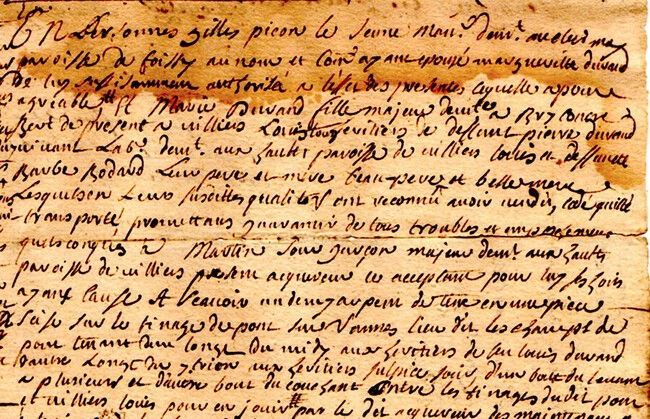 En Personnes gilles picon le Jeune man. demt. au clos
paroisse de foissy au nom et Comme ayant epousé margueritte durand
De luy suffisamment authorisé a leffet des presentes laquelle a pour
agreable Et Marie Durand fille majeure demte a
de present a villiers Louis tous heritiers de deffunt pierre durand
vivant Labr. demt. aux hautes paroisse de villiers louis et deffuncte
Barbe Bodard Leur pere et mere beau pere et belle mere
Lesquels en Leurs susdittes qualités ont reconnu avoir vendu, cedé quitté
transporté promettans garantir de tous troubles et empeschemens
quelconques a Martin Soir garçon majeur demt. aux hautes
paroisse de villiers present acquereur ce acceptant pour luy ses hoirs
ayant Cause A Scavoir un demy arpent de terre en une piece
Scise sur le finage de pont sur Vannes lieu dit les champs de
pont tenant d'un long du midy aux heritiers de feu louis durand
d'autre Long aux heritiers sulpice soir, d'un bout du levant
a plusieurs et d'autre bout du couchant Entre les finages dudit pont
et villiers louis pour en jouir par le dit acquereur des maintenant